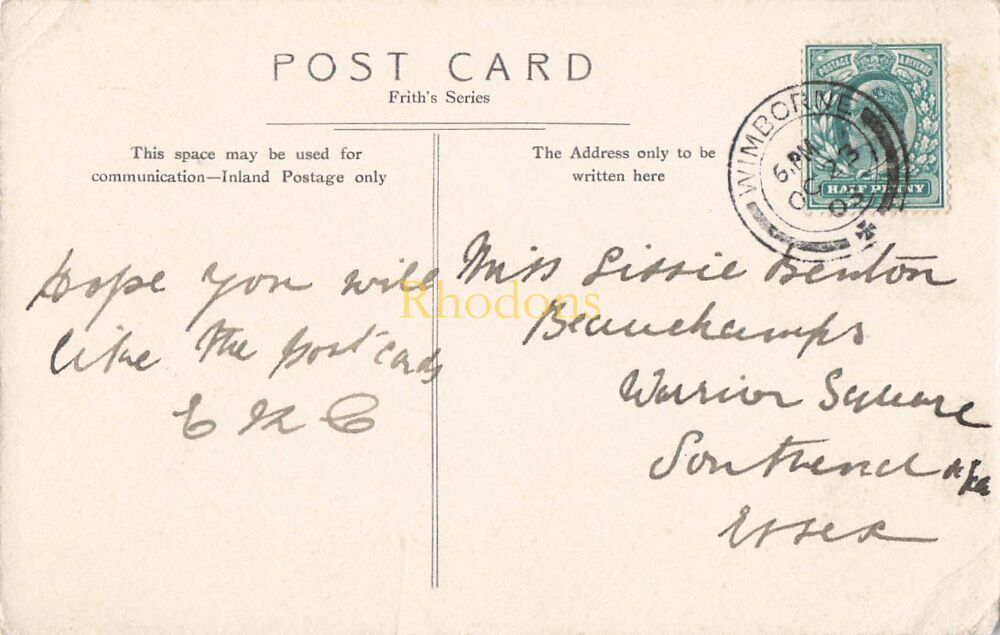 POST CARD
Frith's Series
This space may be used for
communication—Inland Postage only
The Address only to be
written here
POSTAGE & REVENUE
HALF PENNY
WIMBORNE
6. PM
OC 23
03
Hope you will
like the post cards
E K C
Miss Lissie Benton
Beauchamps
Warrior Square
Southend
Essex
Rhodons